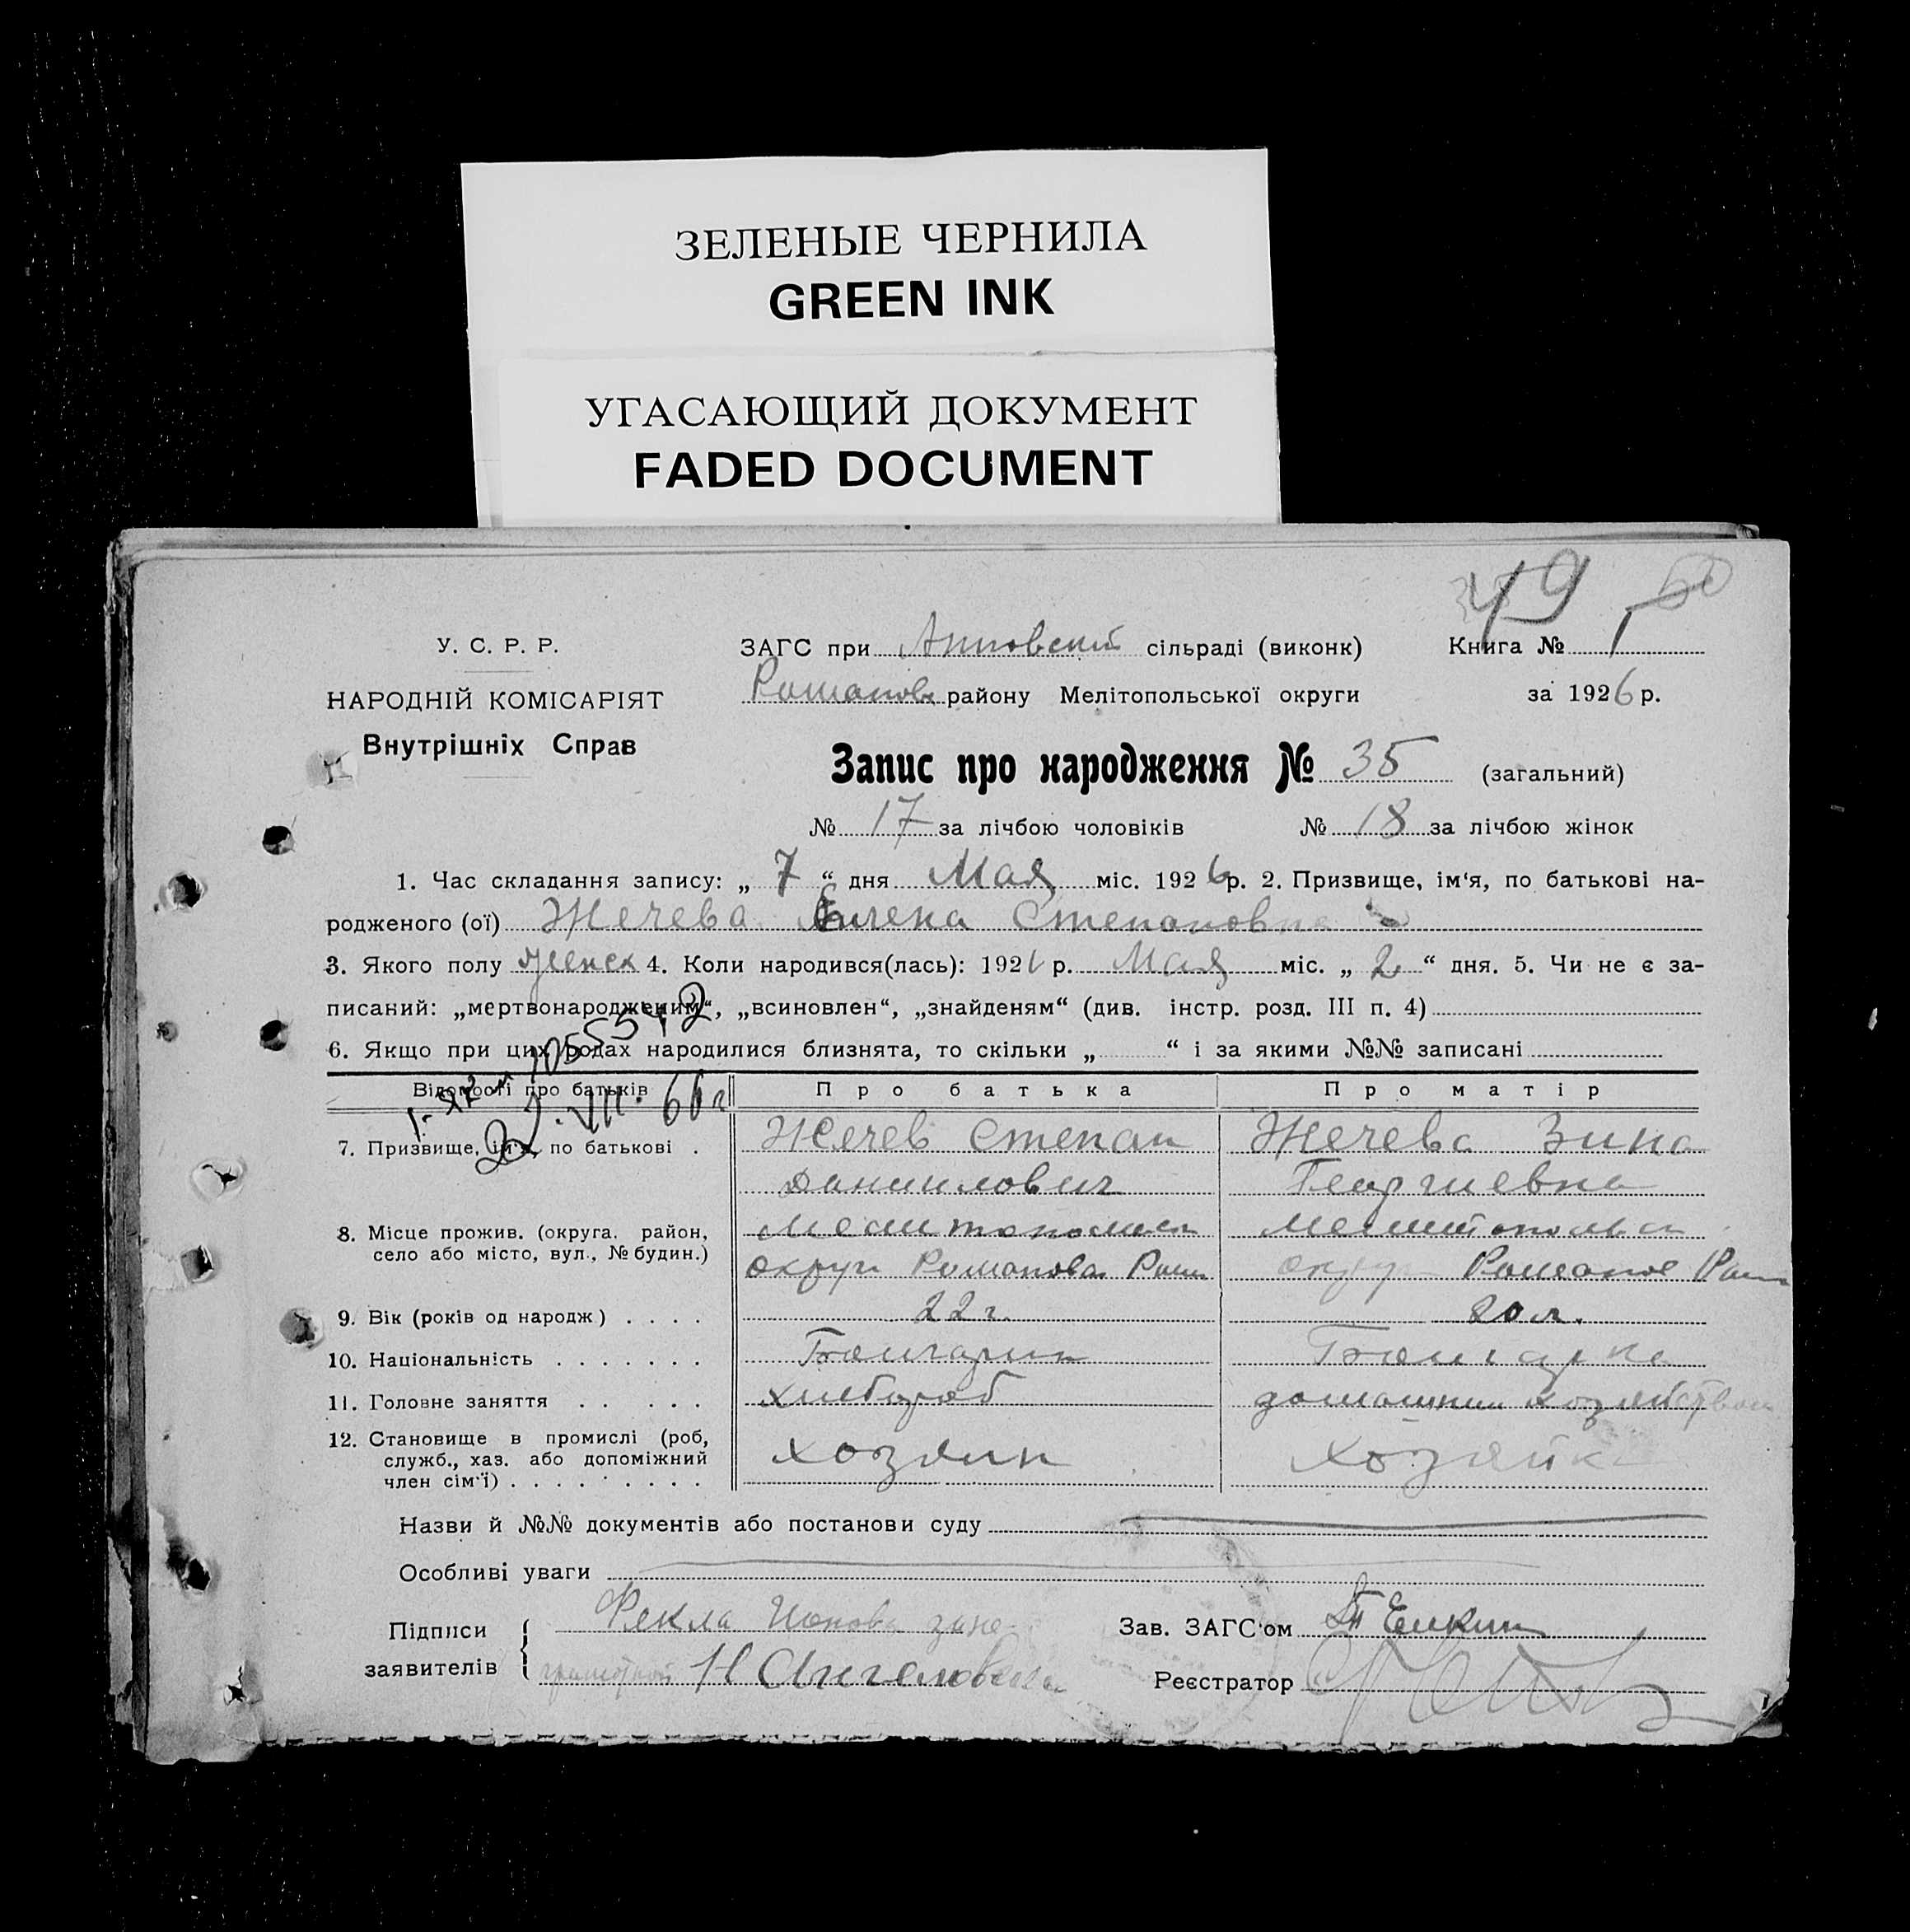 ЗЕЛЕНЫЕ ЧЕРНИЛА
GREEN INK
УГАСАЮЩИЙ ДОКУМЕНТ
FADED DOCUMENT
49
У. С. Р. Р.
НАРОДНІЙ КОМІСАРІЯТ
Внутрішніх Справ
ЗАГС при сільраді (виконк) Книга № 1
Романовс району Мелітопольської округи за 1926 р.
Запис про народження № 35 (загальний)
№ 17 за лічбою чоловіків № 18 за лічбою жінок
1. Час складання запису: „ 7 “ дня Мая міс. 1926 р. 2. Призвище, ім‘я, по батькові на-
родженого (ої) Жечева Елена Степановна
3. Якого полу женск 4. Коли народився(лась): 1926 р. Мая міс. „ 2 “ дня. 5. Чи не є за-
писаний: „мертвонародженим“, „всиновлен“, „знайденям“ (див. інстр. розд. III п. 4)
6. Якщо при цих родах народилися близнята, то скільки „ “ і за якими №№ записані
Відомості про батьків Про батька Про матір
7. Призвище, ім‘я, по батькові . Жечев Степан Жечева Зина
Даниилович Георгиевна
8. Місце прожив. (округа, район, село або місто, вул., № будин.) Мелитопольск Мелитопольск
округи Романовск Рай округи Романов Рай
9. Вік (років од народж) . . . . 22 г. 20 л.
10. Національність . . . . . . . Болгарин Болгарка
11. Головне заняття . . . . . Хлебороб домашним хозяйством
12. Становище в промислі (роб, служб., хаз. або допоміжний член сім‘ї) . . . . . . . . . хозяин хозяйка
Назви й №№ документів або постанови суду
Особливі уваги
Підписи заявителів Фекла
Н Ангеловская
Зав. ЗАГС‘ом
Реєстратор